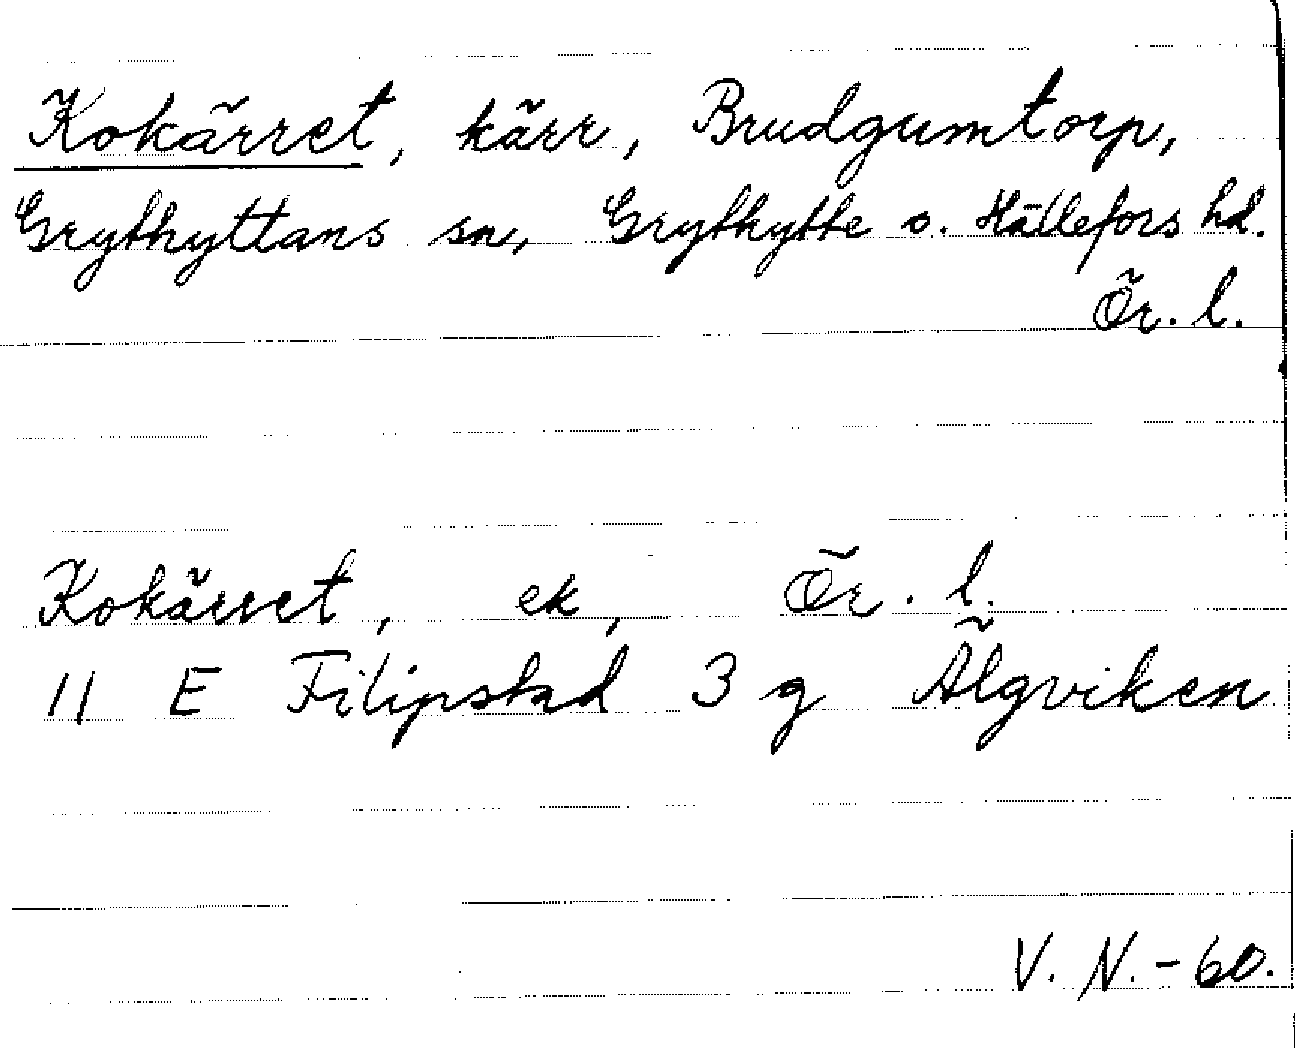 Kokärret, kärr, Brudgumtorp,
Grythyttans sn, Grythytte o. Hällefors hd.
Ör. l.
Kokärret, ek, Ör. l.
11 E Filipstad 3 g Älgviken
V. N. - 60.